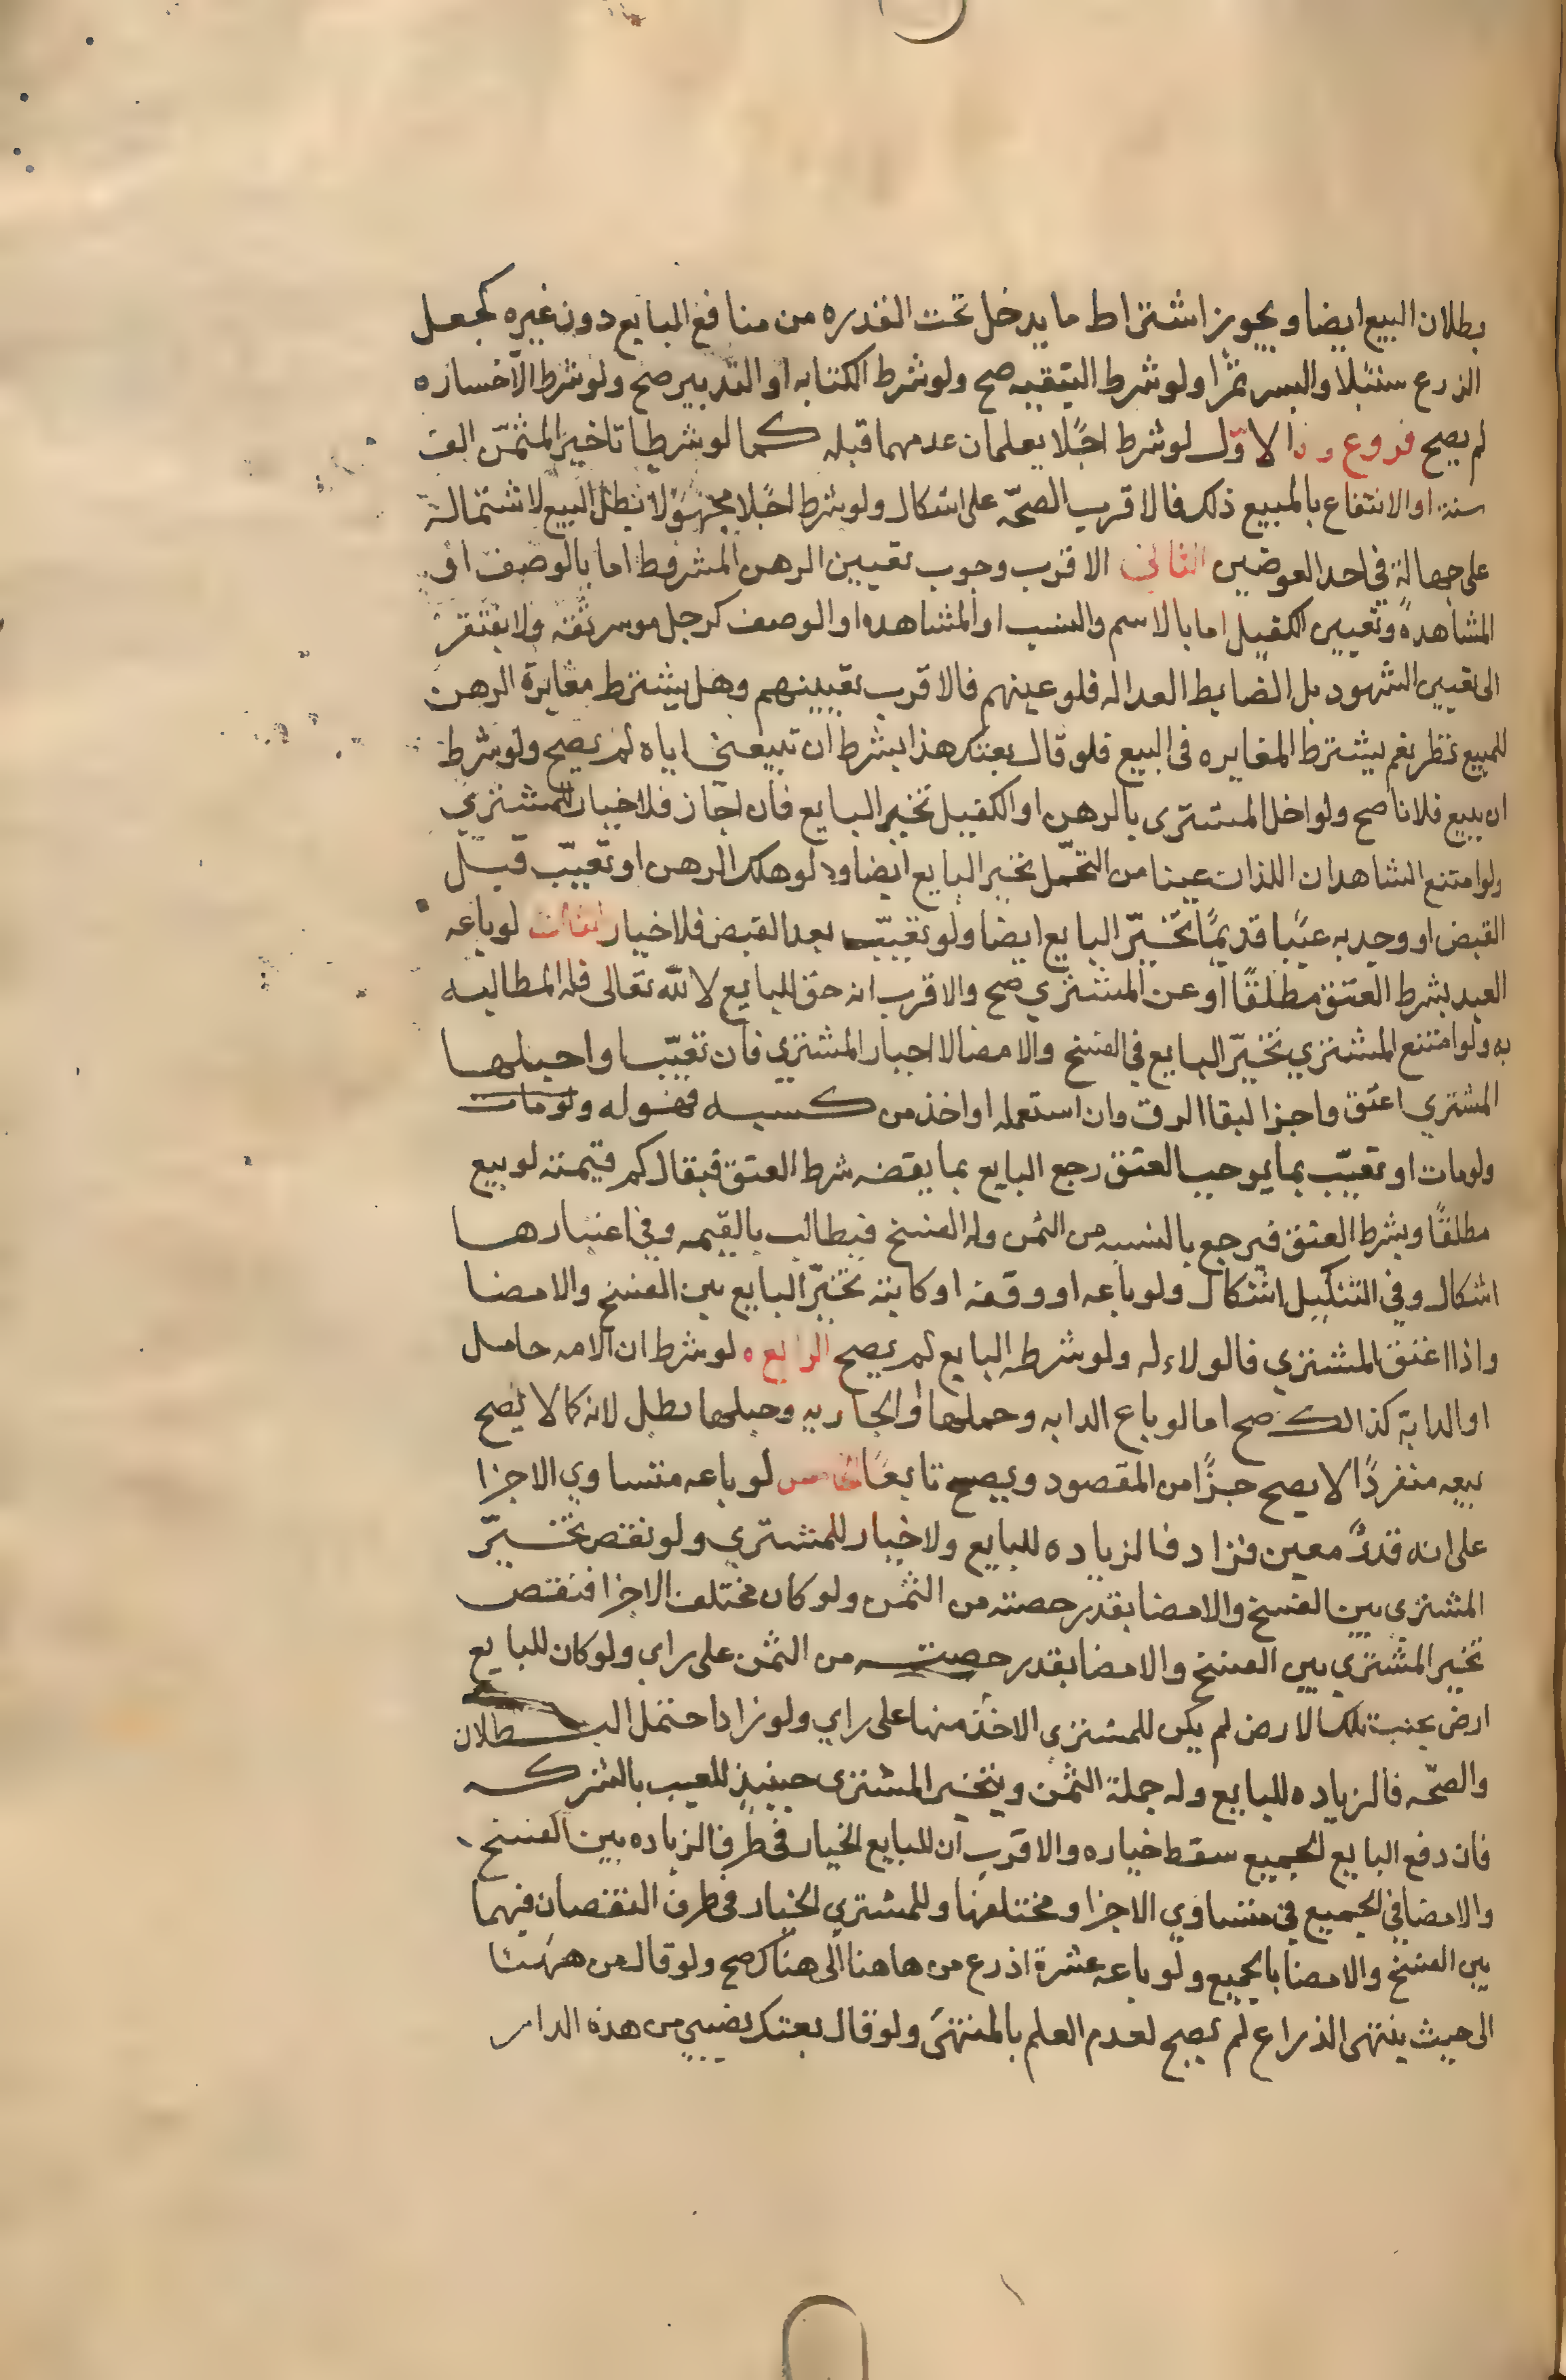 بطلان البيع ايضا ويجوز اشتراط ما يدخل تحت القدره من منافع البايع دون غيره كجعل
الزرع سنبلا والبسر تمرا ولو شرط التبقيه صح ولو شرط الكتابه او التدبير صح ولو شرط الاخساره
لم يصح فروع الاوّل لو شرط اجلا يعلمان عدمهما قبله كما لو شرطا تاخير المثمّن الف
سنة او الانتفاع بالمبيع ذلك فالاقرب الصحّه على اشكال ولو شرط اجلا مجهولا بطل البيع لاشتماله
على جهالة في احد العوضين الثاني الاقرب وجوب تعيين الرهن المشروط اما بالوصف او
المشاهدة وتعيين الكفيل اما بالاسم والنسب او المشاهده او الوصف كرجل موسر ثقه ولا يفتقر
الى تعيين الشهود بل الضابط العداله فلو عينهم فالاقرب تعيينهم وهل يشترط مغايرة الرهن
للمبيع نظر نعم يشترط المغايره في البيع فلو قال بعتك هذا بشرط ان تبيعني اياه لم يصح ولو شرط
ان يبيع فلانا صح ولو اخل المشترى بالرهن او الكفيل تخير البايع فان اجاز فلا خيار للمشتري
ولو امتنع الشاهدان اللذان عينا من التحمّل تخير البايع ايضا ولو هلك الرهن او تعيّب قبل
القبض او وجد به عيبا قديمًا تخيّر البايع ايضا ولو تعيّب بعد القبض فلا خيار الثالث لو باعه
العبد بشرط العتق مطلقًا او عن المشتري صح والاقرب انه حق للبايع لا لله تعالى فله المطالبه
به ولو امتنع المشتري تخيّر البايع في الفسخ والامضا لا اجبار المشتري فان تعيّب او احبلها
المشتري اعتق واجزا لبقا الرق وان استعمله او اخذ من كسبه فهو له ولو مات
ولو مات او تعيّب بما يوجب العتق رجع البايع بما يقتضه شرط العتق فيقال كم قيمته لو بيع
مطلقًا وبشرط العتق فيرجع بالنسبه من الثمن وله الفسخ فيطالب بالقيمه وفي اعتبارها
اشكال وفي التنكيل اشكال ولو باعه او وقفه او كاتبه تخيّر البايع بين الفسخ والامضا
واذا اعتق المشتري فالولاء له ولو شرطه البايع لم يصح الرابع لو شرط ان الامه حامل
او الدابة كذلك صح اما لو باع الدابه وحملها او الجاريه وحبلها بطل لانه كما لا يصح
بيعه منفردًا لا يصح جزًا من المقصود ويصح تابعًا الخامس لو باعه متساوي الاجزا
على انه قدرٌ معين فزاد فالزياده للبايع ولا خيار للمشتري ولو نقص تخيّر
المشتري بين الفسخ والامضا بقدر حصته من الثمن ولو كان مختلف الاجزا فنقص
تخير المشتري بين الفسخ والامضا بقدر حصته من الثمن على راي ولو كان للبايع
ارض بجنب تلك الارض لم يكن للمشتري الاخذ منها على راي ولو زاد احتمل البطلان
والصحّه فالزياده للبايع وله جملة الثمن ويتخير المشتري حينيذ للعيب بالشركه
فان دفع البايع الجميع سقط خياره والاقرب ان للبايع الخيار في طرف الزياده بين الفسخ
والامضا في الجميع في متساوي الاجزا ومختلفها وللمشتري الخيار في طرف النقصان فيهما
بين الفسخ والامضا بالجميع ولو باعه عشرة اذرع من هاهنا الى هناك صح ولو قال من ههنا
الى حيث ينتهى الذراع لم يصح لعدم العلم بالمنتهى ولو قال بعتك نصيبي من هذه الدار